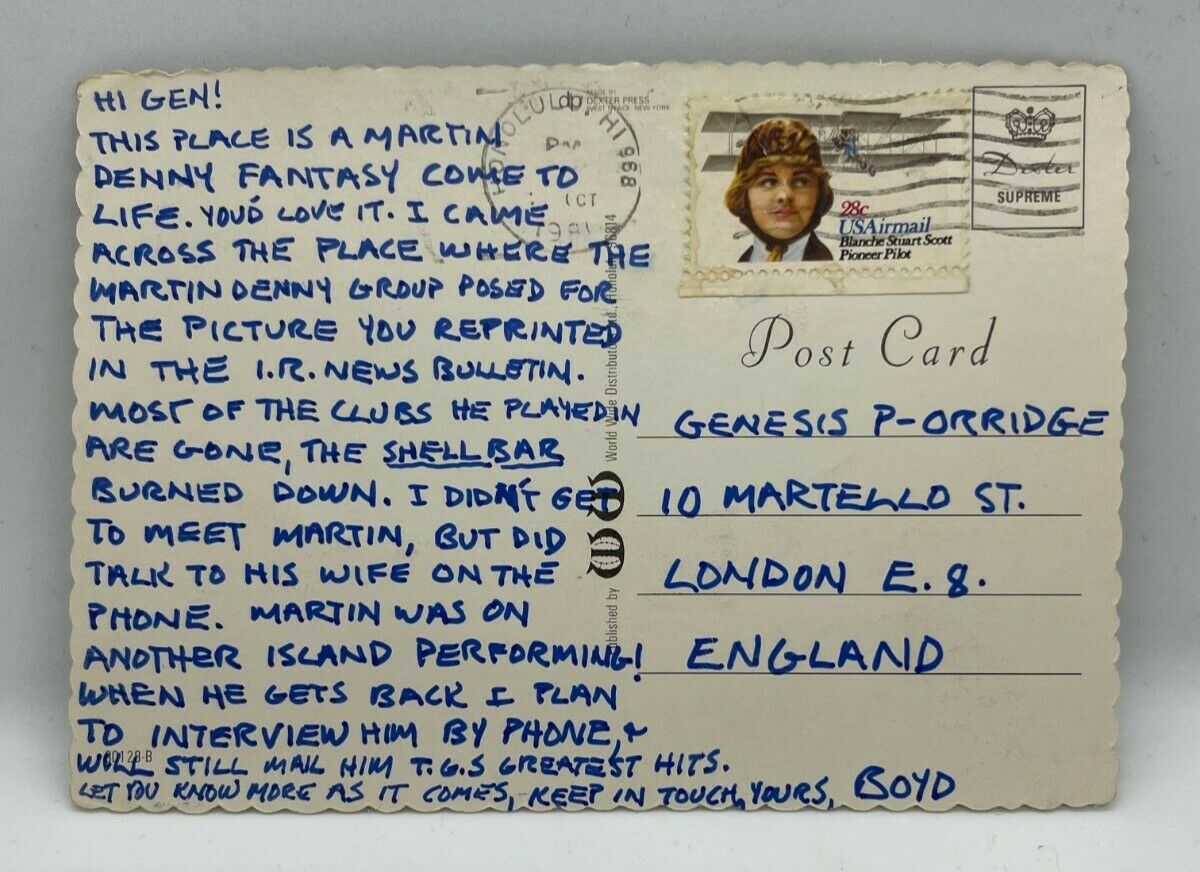 HI GEN!
THIS PLACE IS A MARTIN
DENNY FANTASY COME TO
LIFE. YOU'D LOVE IT. I CAME
ACROSS THE PLACE WHERE THE
MARTIN DENNY GROUP POSED FOR
THE PICTURE YOU REPRINTED
IN THE I.R. NEWS BULLETIN.
MOST OF THE CLUBS HE PLAYED IN
ARE GONE, THE SHELL BAR
BURNED DOWN. I DIDN'T GET
TO MEET MARTIN, BUT DID
TALK TO HIS WIFE ON THE
PHONE. MARTIN WAS ON
ANOTHER ISLAND PERFORMING!
WHEN HE GETS BACK I PLAN
TO INTERVIEW HIM BY PHONE, &
WILL STILL MAIL HIM T.G.S GREATEST HITS.
LET YOU KNOW MORE AS IT COMES, KEEP IN TOUCH, YOURS, BOYD
80128-B
dp
MADE BY
DEXTER PRESS
WEST NYACK, NEW YORK
HONOLULU, HI 968
OCT
1981
28c
USAirmail
Blanche Stuart Scott
Pioneer Pilot
Dexter
SUPREME
Post Card
GENESIS P-ORRIDGE
10 MARTELLO ST.
LONDON E.8.
ENGLAND
Published by WW World Wide Distributors Ltd., Honolulu 96814